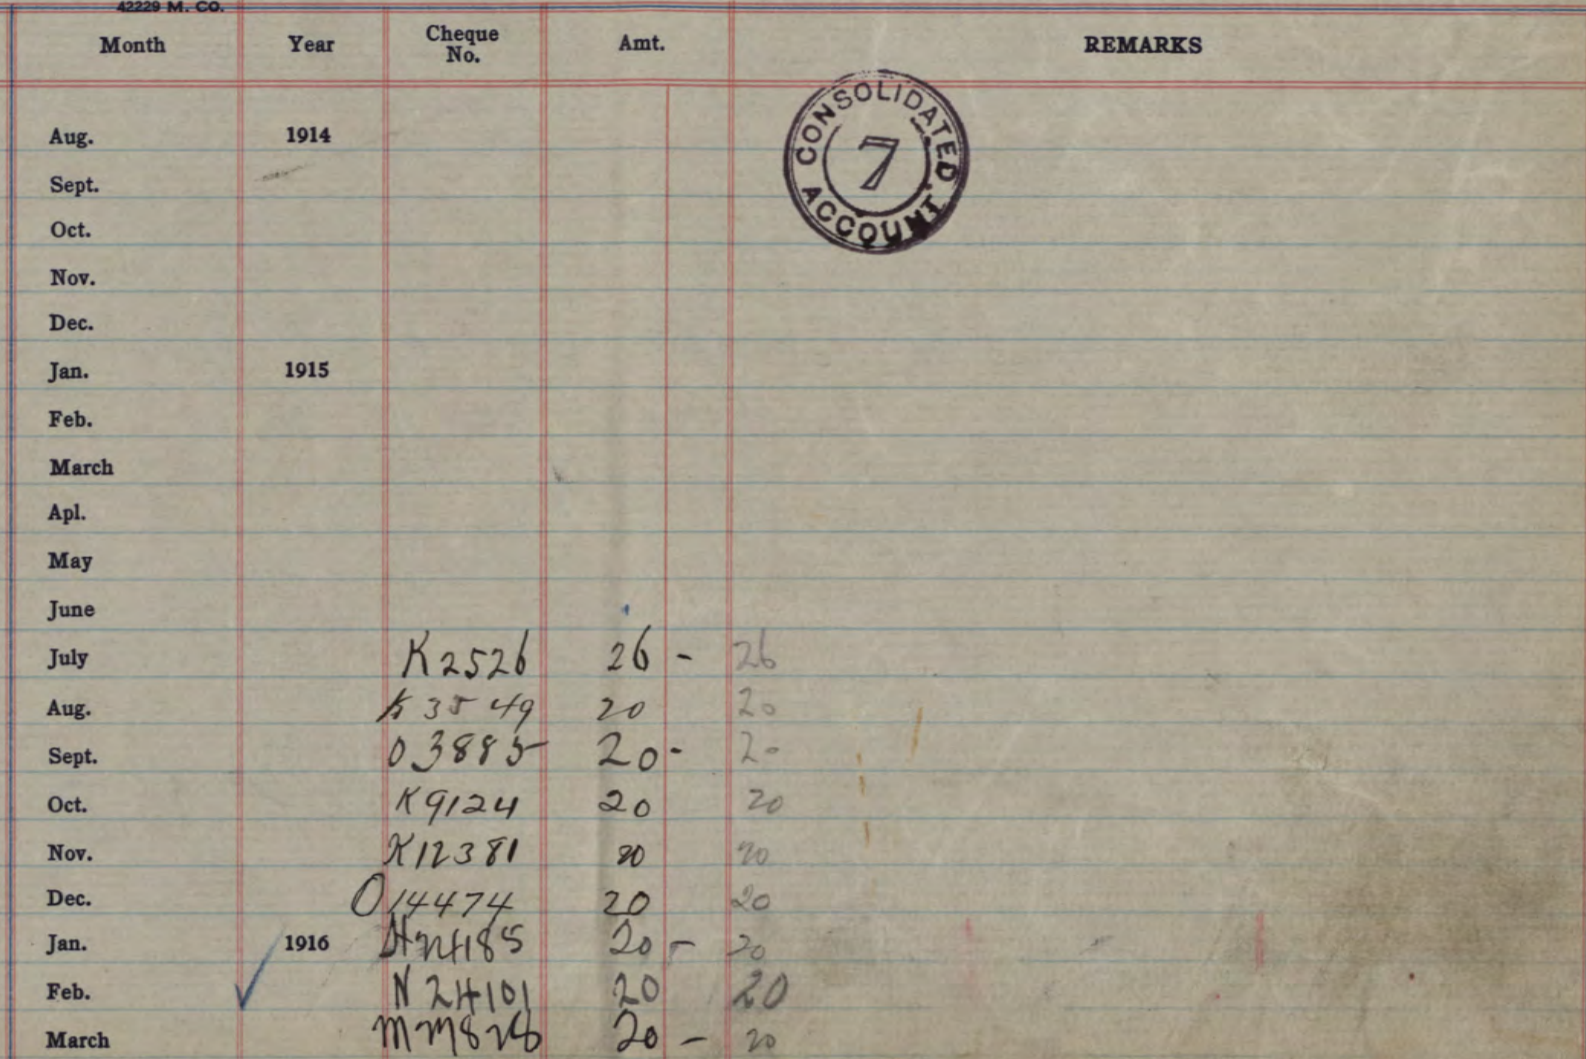 42229 M. CO.
Month Year Cheque No. Amt. REMARKS
CONSOLIDATED ACCOUNT 7
Aug. 1914
Sept.
Oct.
Nov.
Dec.
Jan. 1915
Feb.
March
Apl.
May
June
July K2526 26 - 26
Aug. K3549 20 20
Sept. O3885 20 - 20
Oct. K9124 20 20
Nov. K12381 20 20
Dec. O14474 20 20
Jan. 1916 20 - 20
Feb. N24101 20 20
March 20 - 20